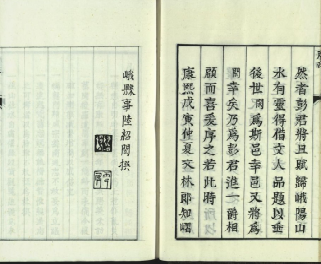 然者彭君將且賦歸峨陽山
水有靈得借文人品題以垂
後世闁爲斯邑幸邑又將爲
闁幸矣乃爲彭君進一爵相
顧而喜爰序之若此時
康熙戊寅仲夏文林郎知
峨縣事陸紹閎撰